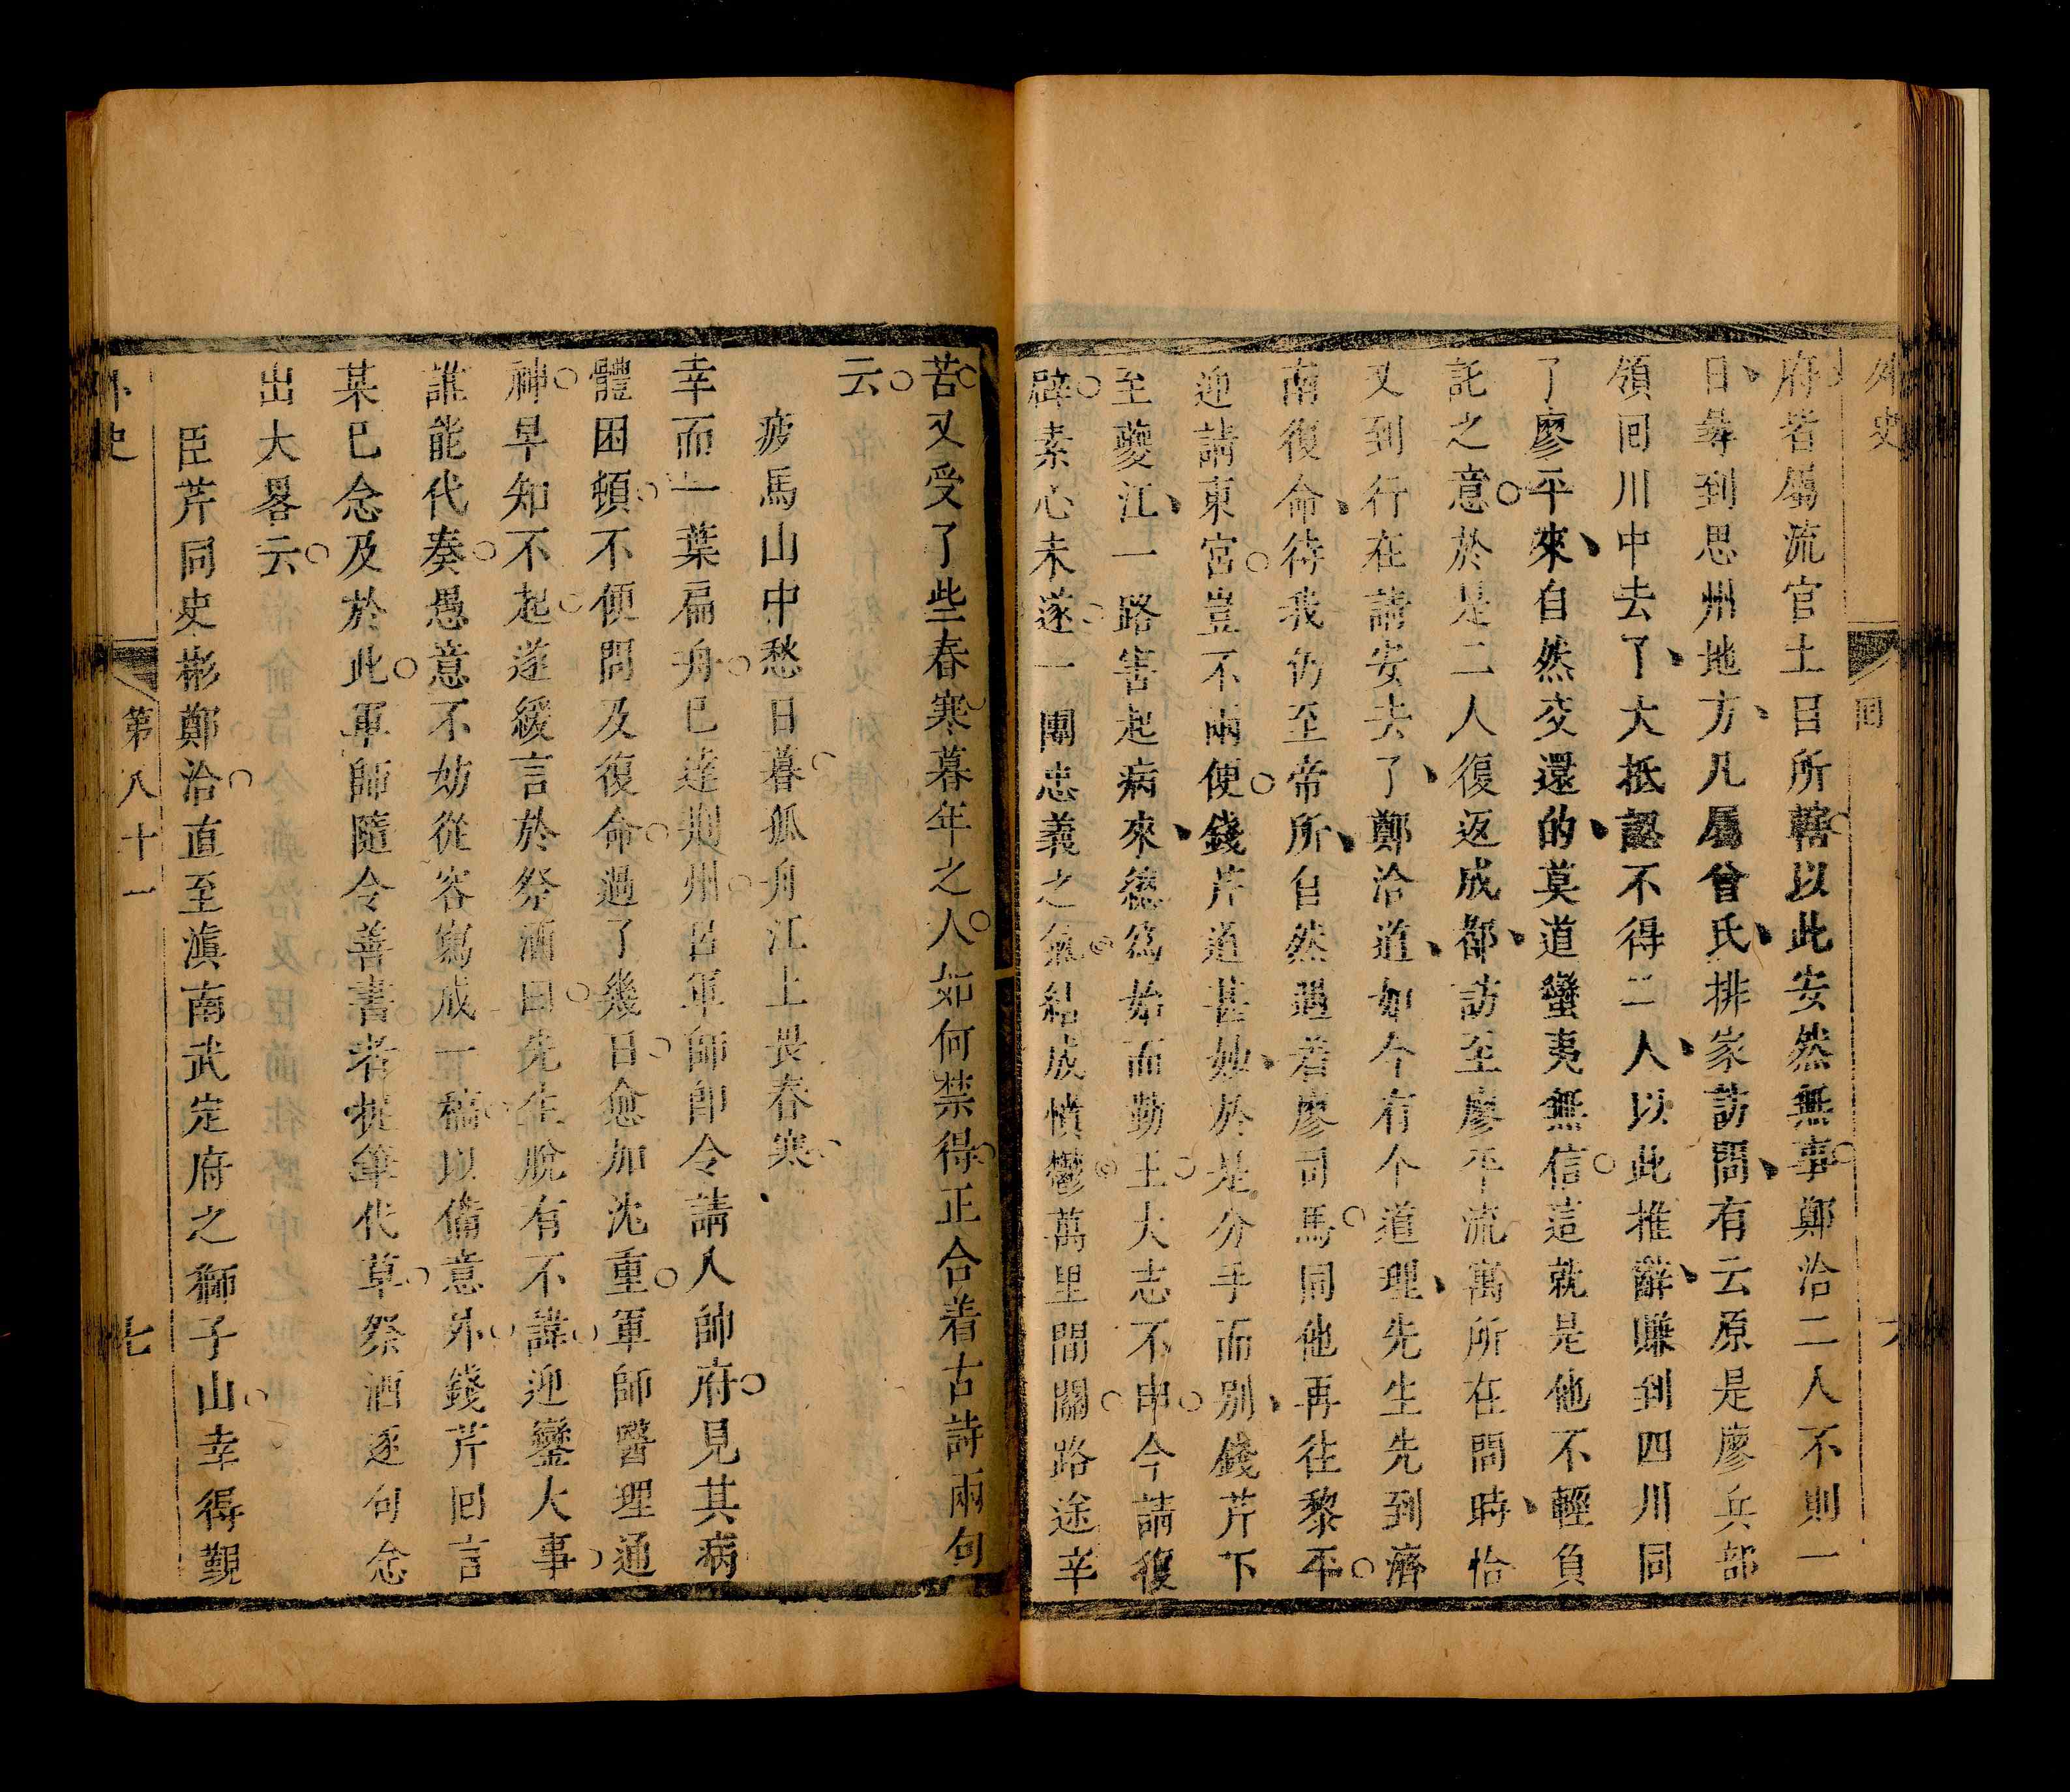 外史
回
六
府者屬流官土目所轄以此安然無事鄭洽二人不則一
日尋到思州地方凡屬曾氏排家訪問有云原是廖兵部
領回川中去了大抵認不得二人以此推辭賺到四川同
了廖平來自然交還的莫道蠻夷無信這就是他不輕負
託之意於是二人復返成都訪至廖平流寓所在問時恰
又到行在請安去了鄭洽道如今有个道理先生先到濟
南復命待我仍至帝所自然遇着廖司馬同他再往黎平
迎請東宮豈不兩便錢芹道甚妙於是分手而別錢芹下
至夔江一路害起病來總為始而勤王大志不申今請復
辟素心未遂一團忠義之氣結成憤鬱萬里間關路途辛
苦又受了些春寒暮年之人如何禁得正合着古詩兩句
云
疲馬山中愁日暮孤舟江上畏春寒
幸而一葉扁舟已達荆州呂軍師即令請人帥府見其病
體困頓不便問及復命過了幾日愈加沈重軍師醫理通
神早知不起遂緩言於祭酒曰先生脫有不諱迎鑾大事
誰能代奏愚意不妨從容寫成一稿以備意外錢芹回言
某已念及於此軍師隨令善書者掟筆代草祭酒逐句念
出大畧云
臣芹同史彬鄭洽直至滇南武定府之獅子山幸得覲
外史
第八十一
七